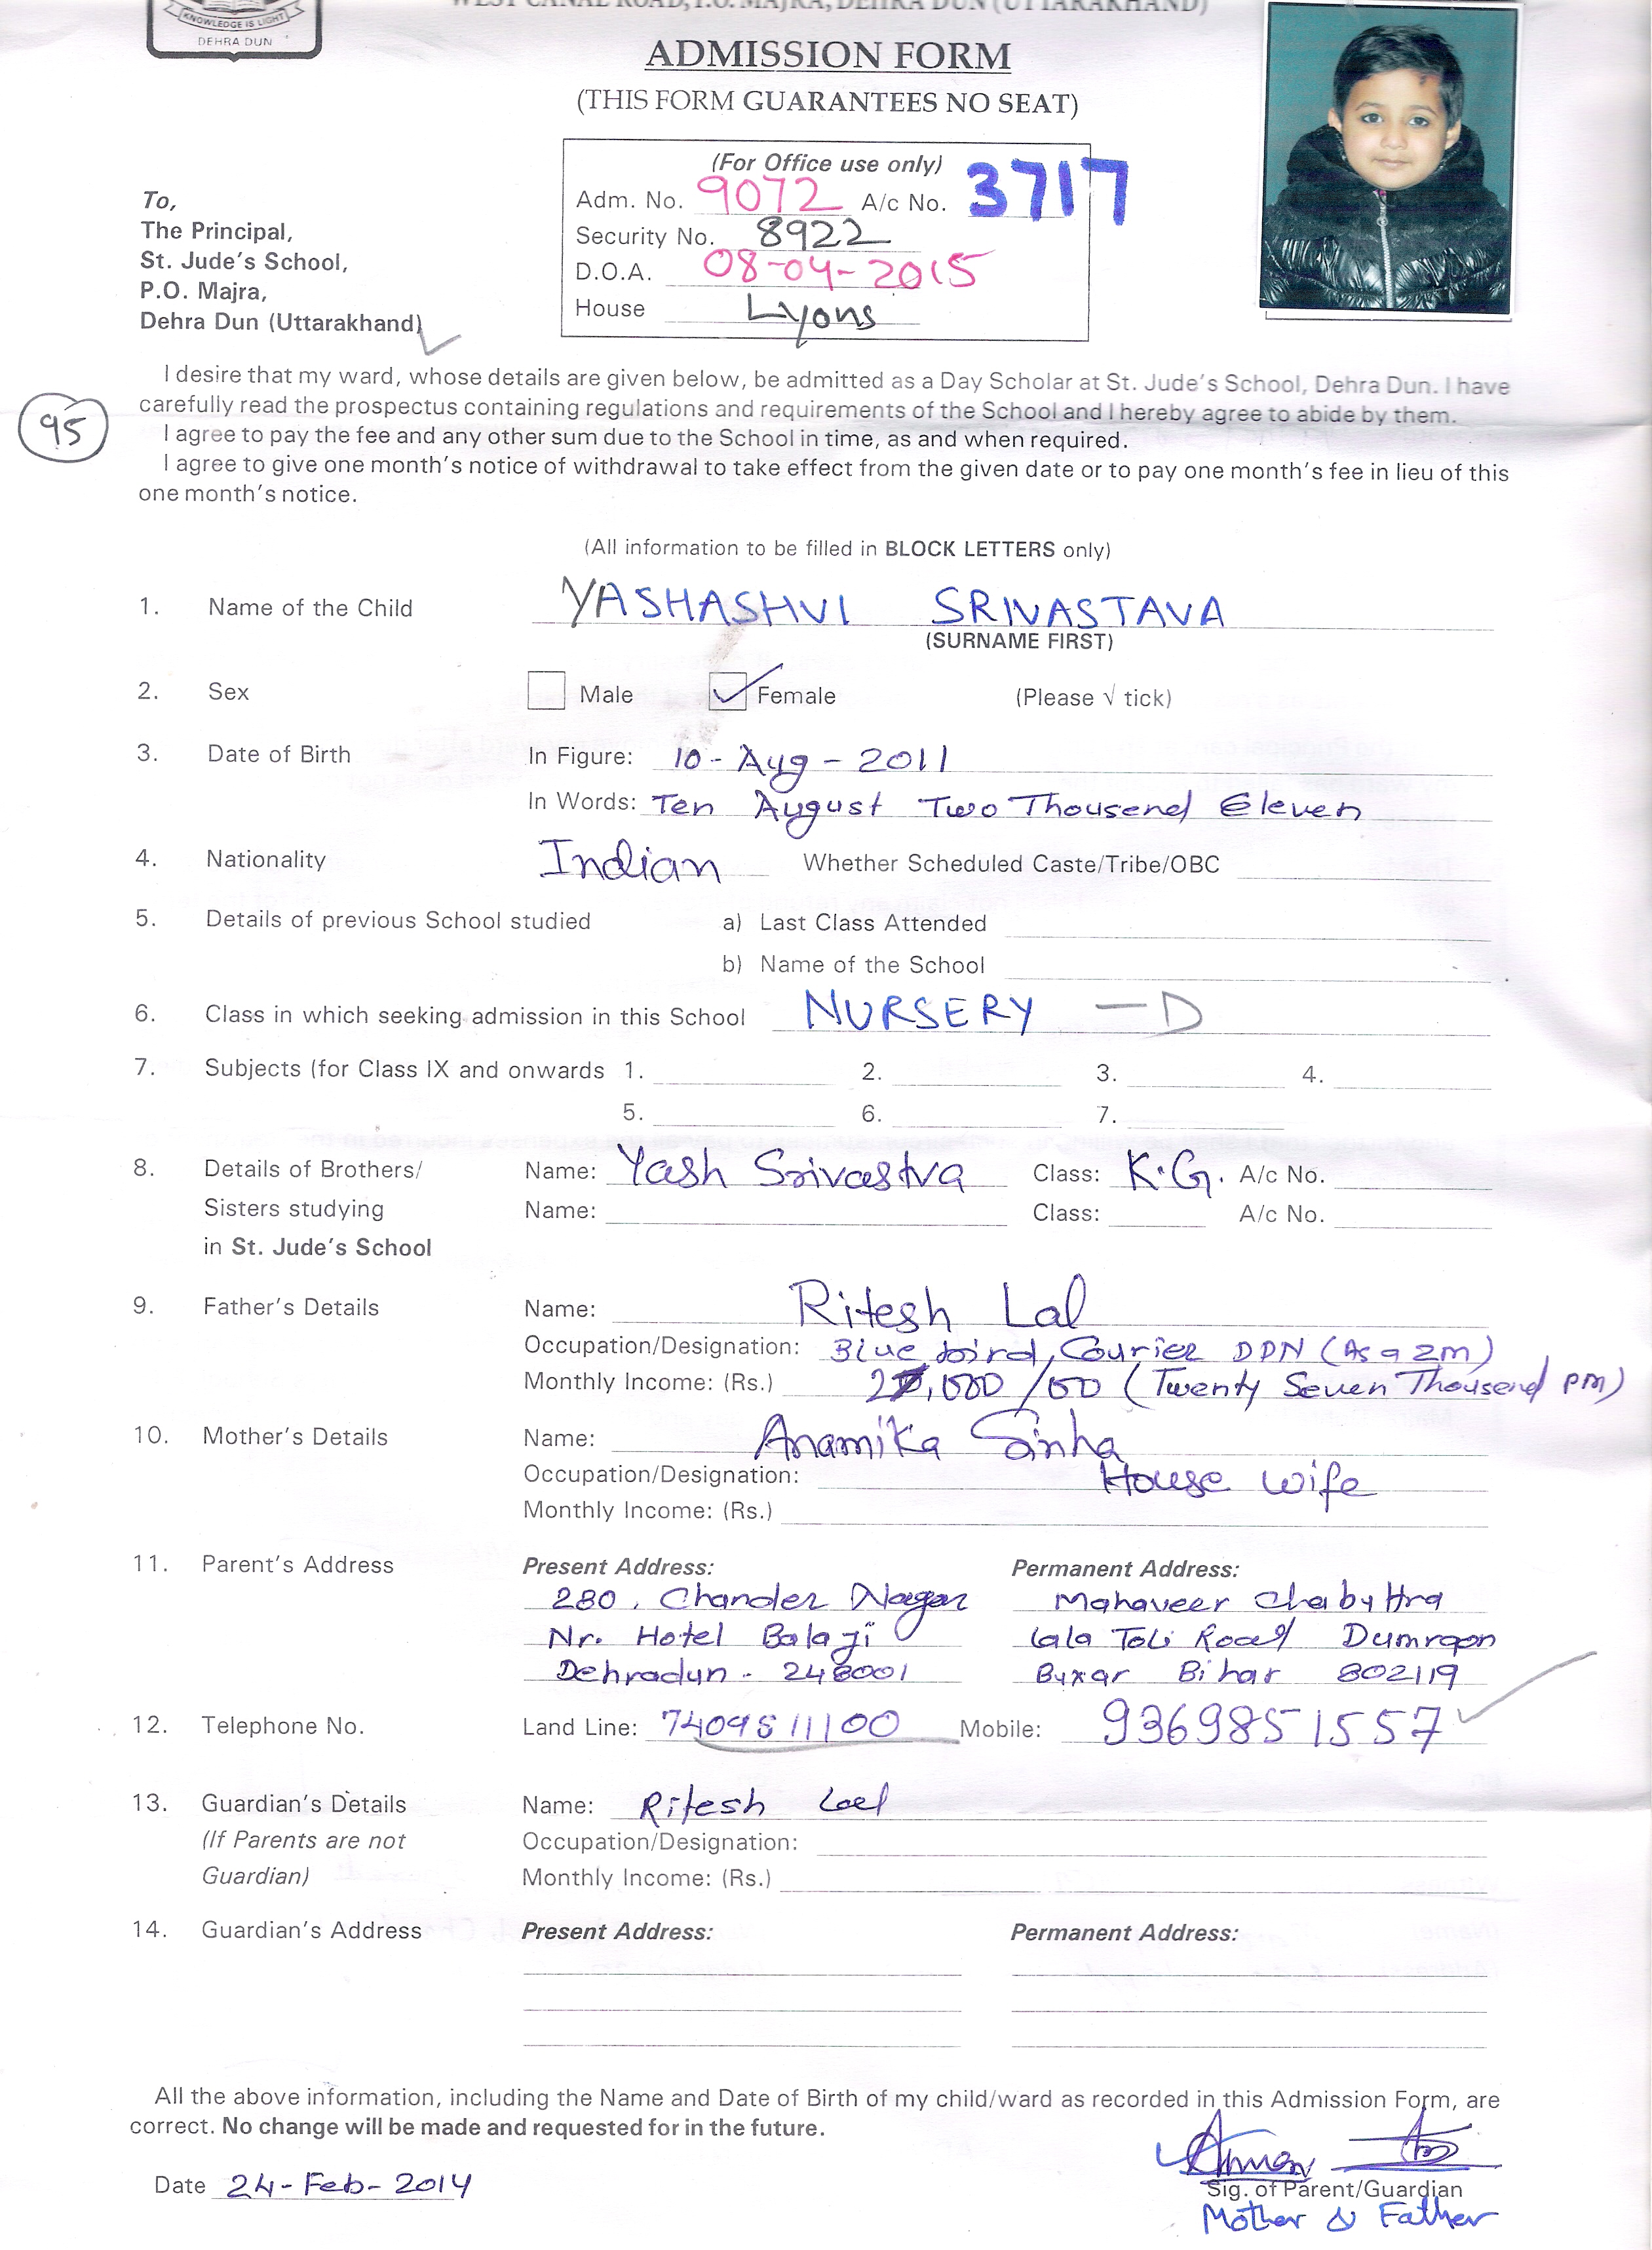 KNOWLEDGE IS LIGHT
DEHRA DUN
WEST CANAL ROAD, P.O. MAJRA, DEHRA DUN (UTTARAKHAND)
ADMISSION FORM
(THIS FORM GUARANTEES NO SEAT)
(For Office use only)
Adm. No. 9072 A/c No. 3717
Security No. 8922
D.O.A. 08-04-2015
House Lyons
To,
The Principal,
St. Jude's School,
P.O. Majra,
Dehra Dun (Uttarakhand)
I desire that my ward, whose details are given below, be admitted as a Day Scholar at St. Jude's School, Dehra Dun. I have
carefully read the prospectus containing regulations and requirements of the School and I hereby agree to abide by them.
95
I agree to pay the fee and any other sum due to the School in time, as and when required.
I agree to give one month's notice of withdrawal to take effect from the given date or to pay one month's fee in lieu of this
one month's notice.
(All information to be filled in BLOCK LETTERS only)
1. Name of the Child YASHASHVI SRIVASTAVA
(SURNAME FIRST)
2. Sex Male Female (Please √ tick)
3. Date of Birth In Figure: 10-Aug-2011
In Words: Ten August Two Thousend Eleven
4. Nationality Indian Whether Scheduled Caste/Tribe/OBC
5. Details of previous School studied a) Last Class Attended
b) Name of the School
6. Class in which seeking admission in this School NURSERY - D
7. Subjects (for Class IX and onwards 1. 2. 3. 4.
5. 6. 7.
8. Details of Brothers/ Name: Yash Srivastva Class: K.G. A/c No.
Sisters studying Name: Class: A/c No.
in St. Jude's School
9. Father's Details Name: Ritesh Lal
Occupation/Designation: Blue bird, Courier DDN (As a ZM)
Monthly Income: (Rs.) 27,000/00 (Twenty Seven Thousend PM)
10. Mother's Details Name: Anamika Sinha
Occupation/Designation: House wife
Monthly Income: (Rs.)
11. Parent's Address Present Address: Permanent Address:
280, Chander Nagar Mahaveer Chabuttra
Nr. Hotel Balaji Lala Toli Road Dumraon
Dehradun - 248001 Buxar Bihar 802119
12. Telephone No. Land Line: 7409511100 Mobile: 9369851557
13. Guardian's Details Name: Ritesh Lal
(If Parents are not Occupation/Designation:
Guardian) Monthly Income: (Rs.)
14. Guardian's Address Present Address: Permanent Address:
All the above information, including the Name and Date of Birth of my child/ward as recorded in this Admission Form, are
correct. No change will be made and requested for in the future.
Date 24-Feb-2014
Sig. of Parent/Guardian
Mother & Father